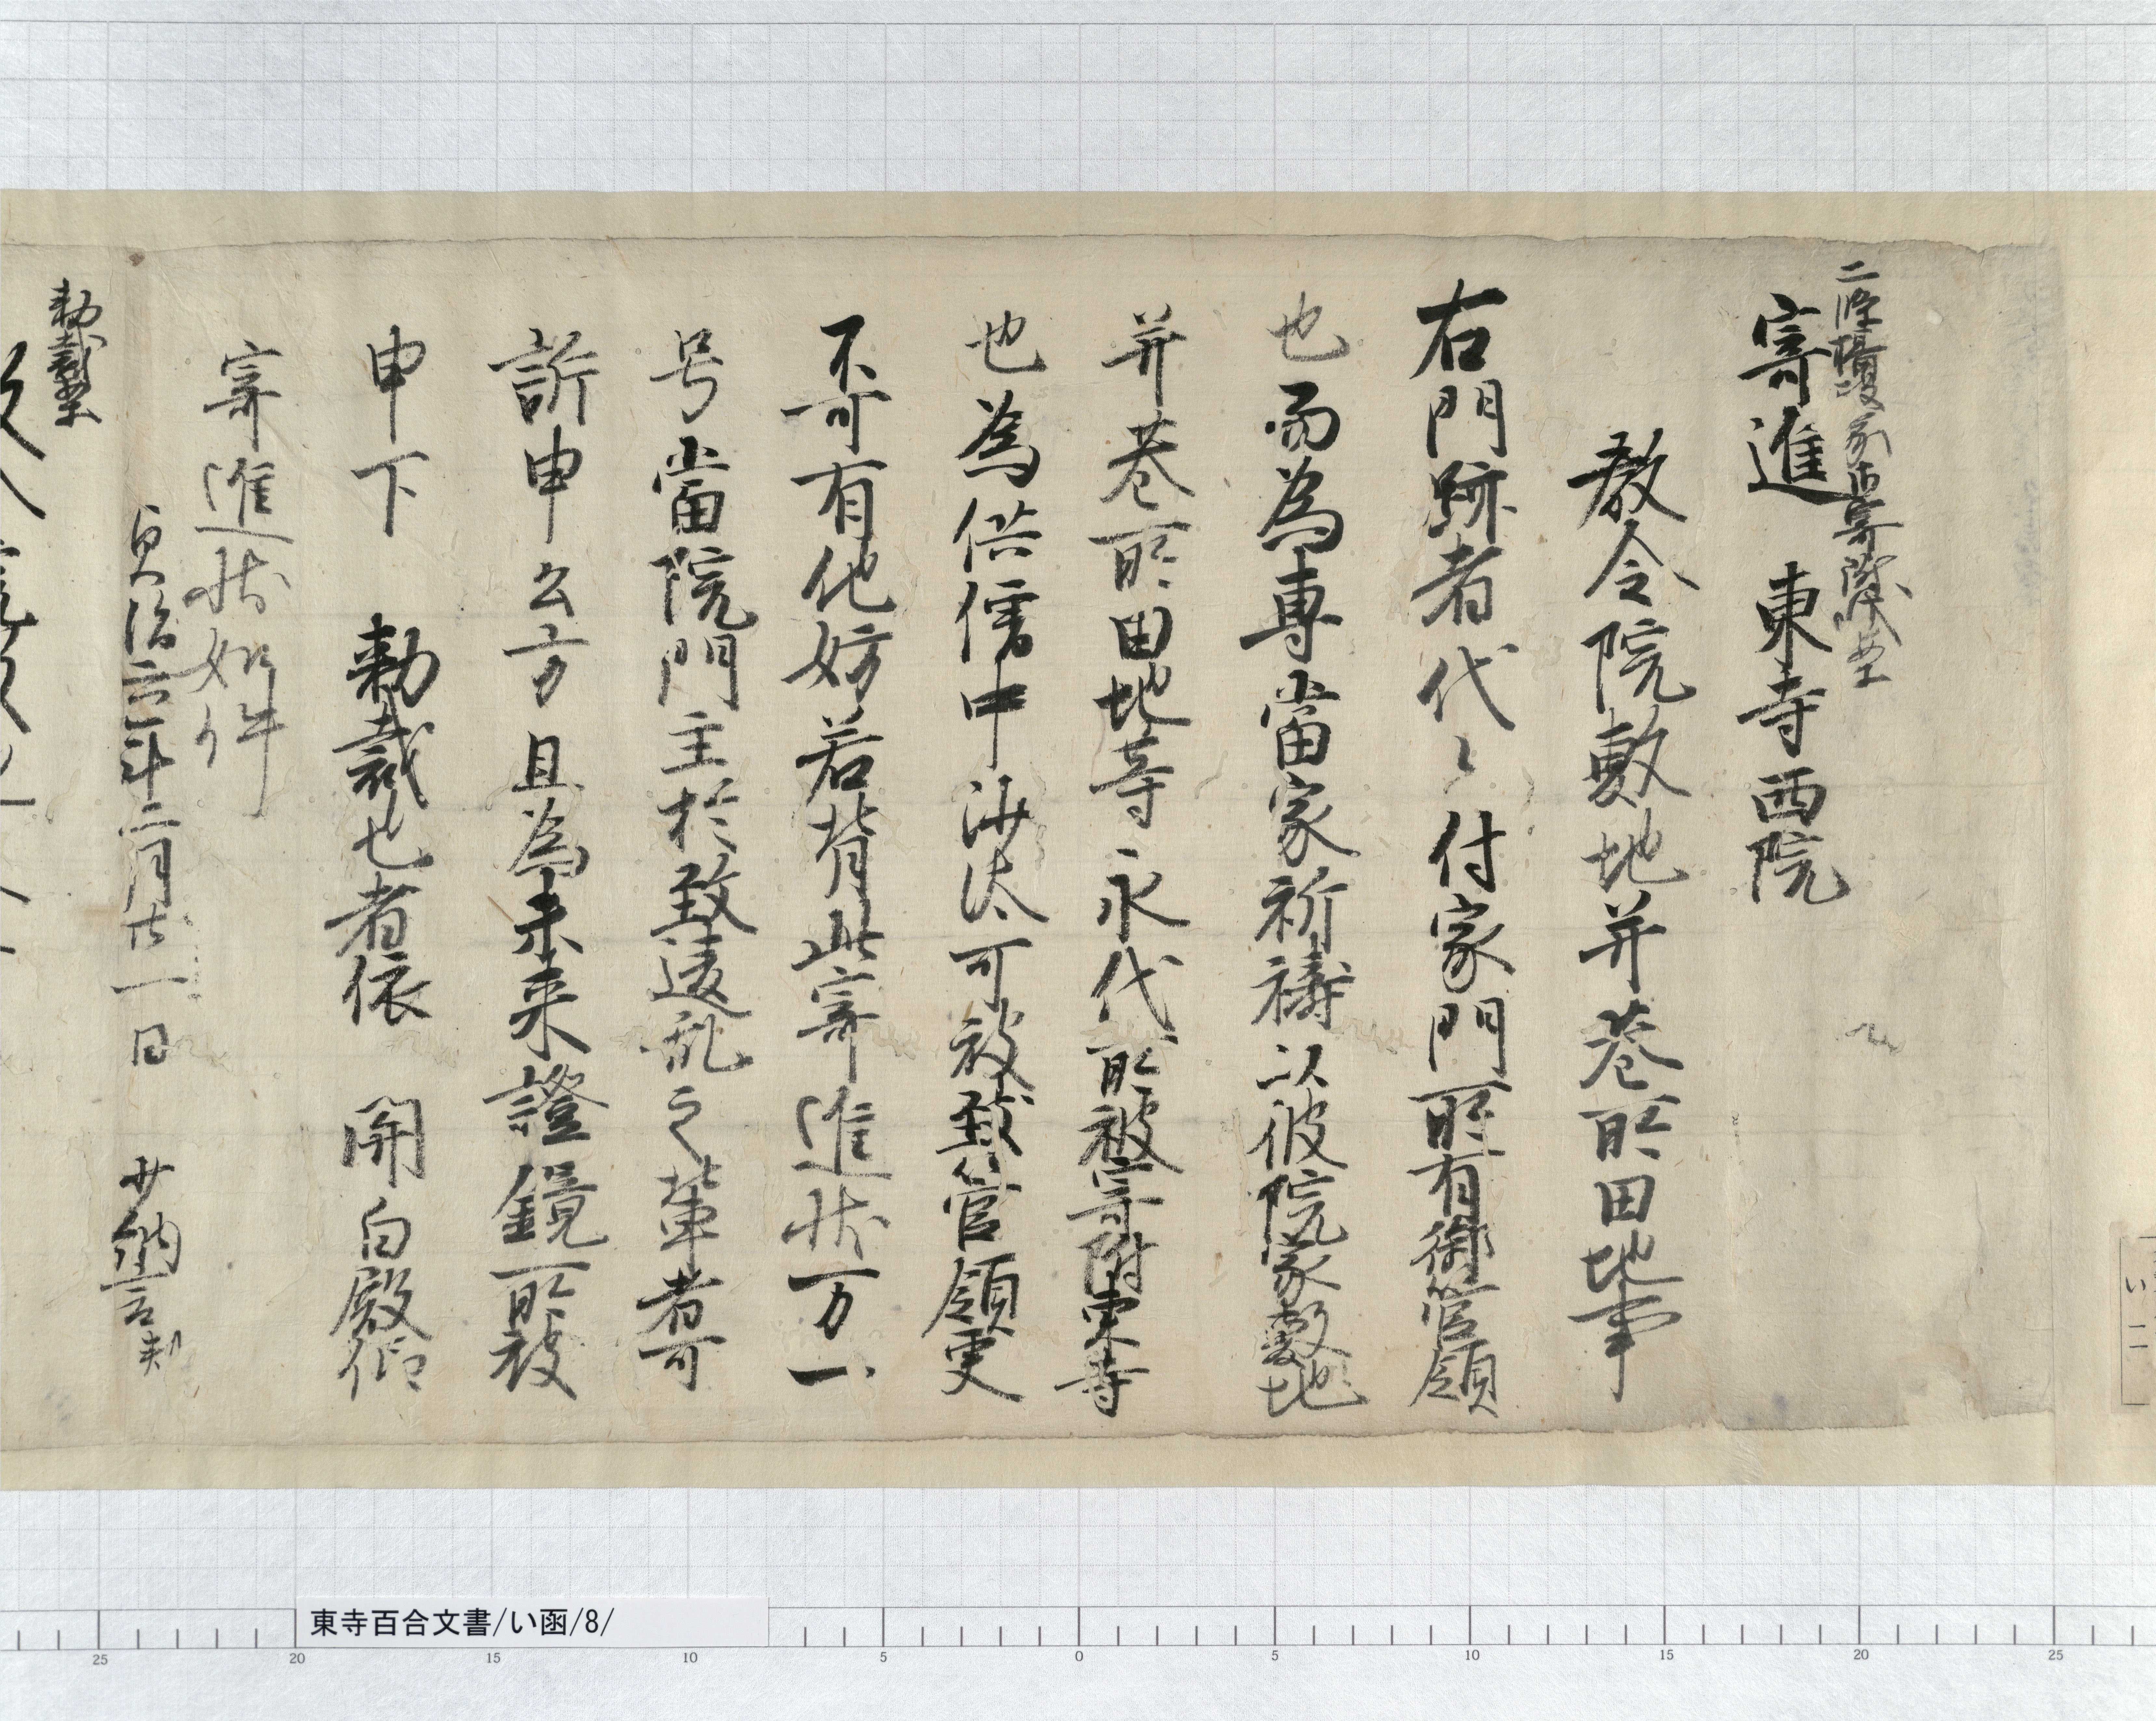 二條摂家御寄附案
寄進　東寺西院
教令院敷地并巷所田地事
右門跡者代々付家門所有御管領
也而為専當家祈禱以彼院家敷地
并巷所田地等永代所被寄附東寺
也為供僧中沙汰可被致管領更
不可有他妨若背此寄進状万一
号當院門主於致違乱之輩者可
訴申公方且為未来證鏡所被
申下　勅裁也者依　関白殿仰
寄進状如件
貞治六年二月廿一日　少納言判
勅裁案
東寺百合文書/い函/8/
25 20 15 10 5 0 5 10 15 20 25